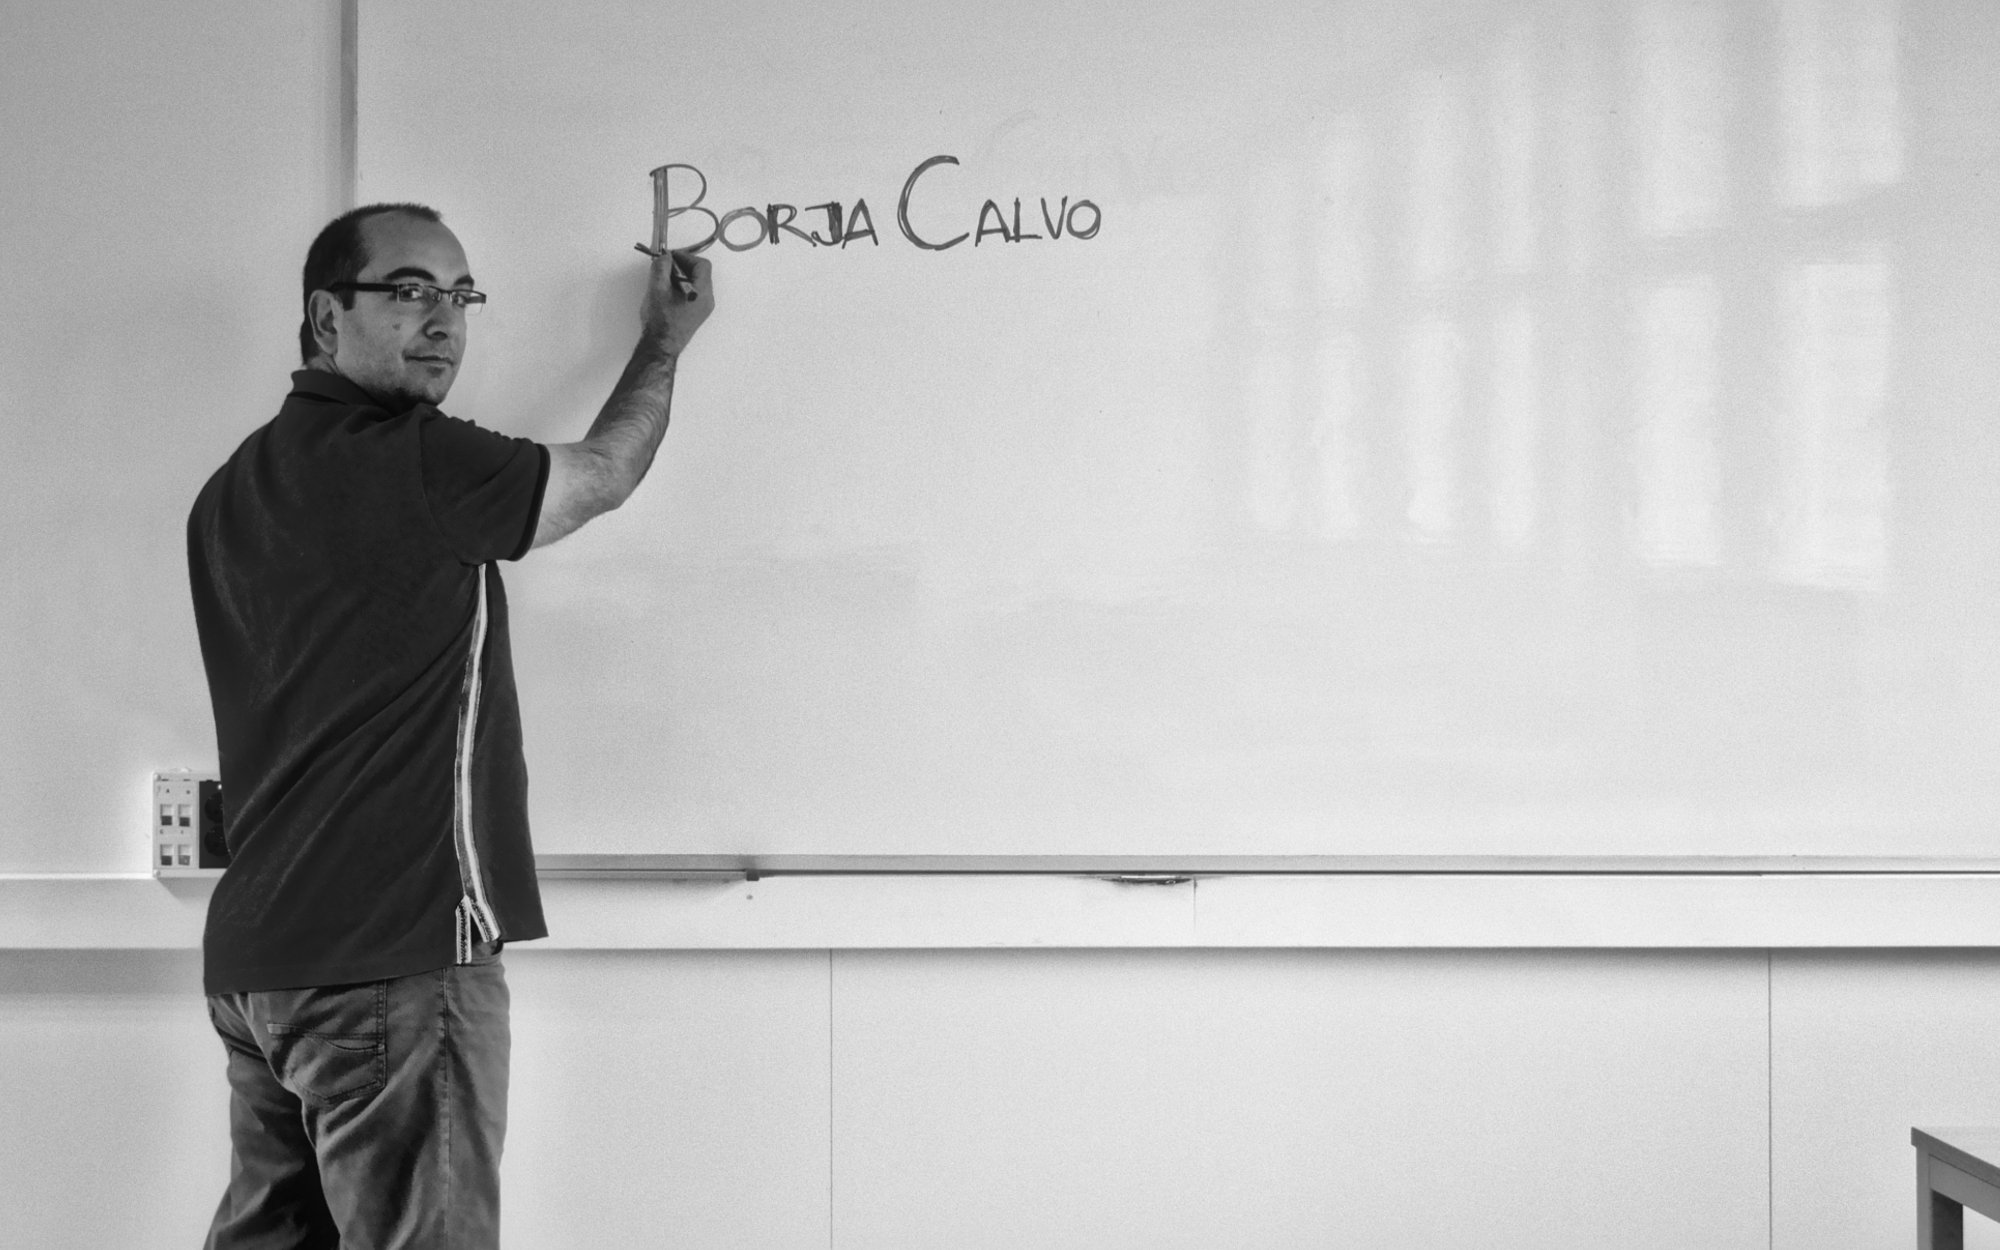 BORJA CALVO